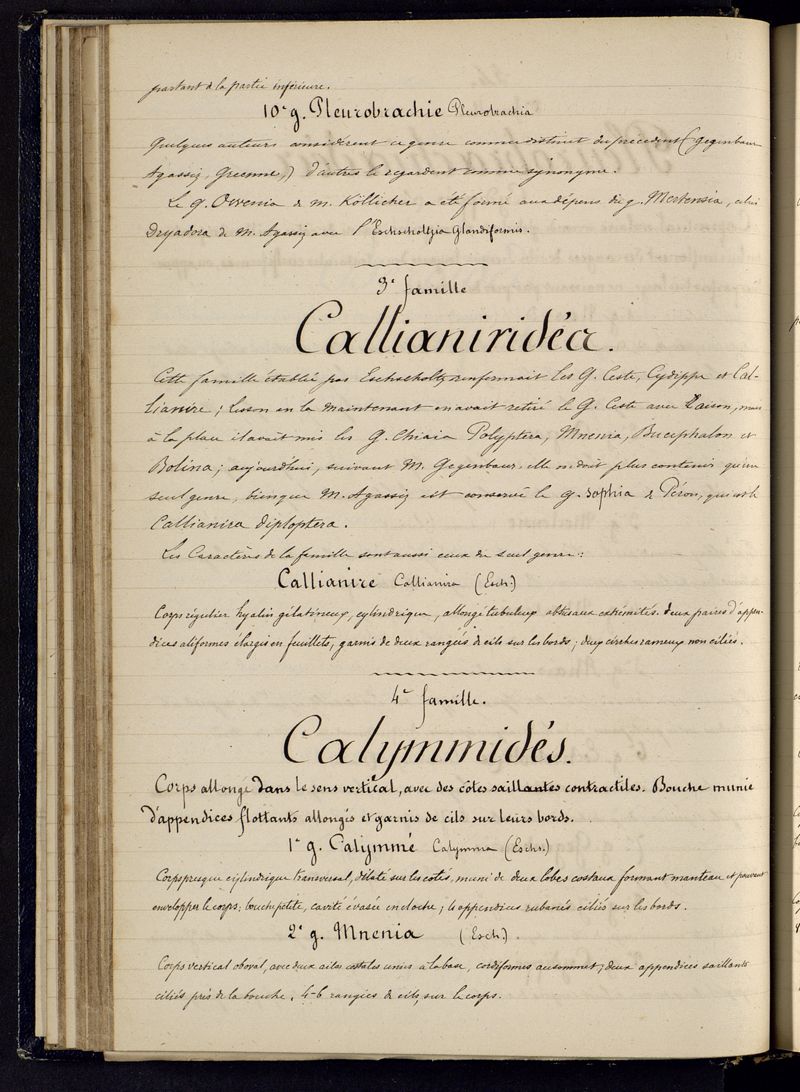 partant de la partie inférieure.
10e g. Pleurobrachie Pleurobrachia
Quelques auteurs considèrent ce genre comme distinct du précédent (Gegenbaur
Agassiz, Greenne,) d'autres le regardent comme synonyme.
Le g. Owenia de M. Köllicher a été formé aux dépens du g. Mertensia, celui
Dryadora de M. Agassiz avec l'Eschscholtzia Glandiformis.
3e famille
Callianiridéa.
Cette famille établie par Eschscholtz renfermait les G. Ceste, Cydippe et Cal-
lianire; Lesson en la maintenant en avait retiré le G. Ceste avec raison, mais
à la place il avait mis les G. Chiaia Polyptera, Mnemia, Bucephalon et
Bolina; aujourd'hui, suivant M. Gegenbaur elle ne doit plus contenir qu'un
seul genre, bien que M. Agassiz est conservé le g. Sophia de Péron, qui est le
Callianira diploptera.
Les Caractères de la famille sont aussi ceux du seul genre:
Callianire Callianira (Esch.)
Corps régulier hyalin gélatineux, cylindrique, allongé tubuleux obtus aux extrémités. deux paires d'appen-
dices aliformes élargis en feuillets, garnis de deux rangées de cils sur les bords; deux cirrhes rameux non ciliés.
4e famille.
Calymmidés.
Corps allongé dans le sens vertical, avec des côtes saillantes contractiles. Bouche munie
d'appendices flottants allongés et garnis de cils sur leurs bords.
1er g. Calymmé Calymma (Eschs.)
Corps presque cylindrique transversal, dilaté sur les côtés, muni de deux lobes costaux formant manteau et pouvant
envelopper le corps; bouche petite, cavité évasée en cloche; 4 appendices rubanés ciliés sur les bords.
2e g. Mnenia (Esch.)
Corps vertical oboval, avec deux ailes costales unies à la base, cordiformes au sommet; deux appendices saillants
ciliés près de la bouche. 4-6 rangées de cils, sur le corps.